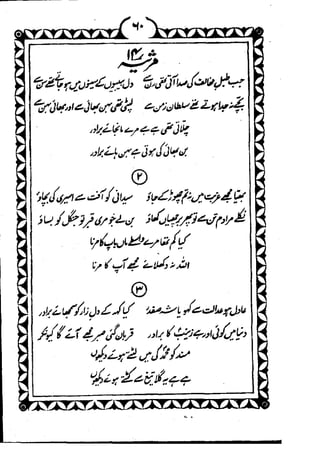 ۶۰
مرثیہ ۱۴
جب طبل مخالف کی صدا آتی تھی رن سے دل بیبیوں کے سینوں میں ہو جاتے تھے سن سے
بچنے جدا ہوتے تھے سلطان زمن سے لپٹی تھی بہن بھائی سے اور بھائی بہن سے
چلاتی تھی ہے ہے مرے مانجائے برادر
بن بھائی کی ہوتی ہے بہن ہائے برادر
۲
بھیا مجھے غربت میں نہ تم چھوڑ کے جاؤ سیدانی کو آفت سے اسیری کی بچاؤ
نکلے مرا دم تن سے تو پھر برچھیاں کھاؤ بن لے چو مری قبر تو جنگل کو بساؤ
کیا کم تھا مرے واسطے ماں باپ کا مرنا
اللہ نہ دکھلائے مجھے آپ کا مرنا
۳
عادل ہو عدالت سے کہو یا شہ صفدر کیا کہہ کے دل زار کو سمجھائے برادر
دنیا میں کوئی اور ہے زینب کا برادر قربان گئی صبر مجھے آئے گا کیونکر
مسند کو محمد کی میں لٹتے ہوئے دیکھوں
ہے ہے یہ گلا تیغ سے کٹتے ہوئے دیکھوں